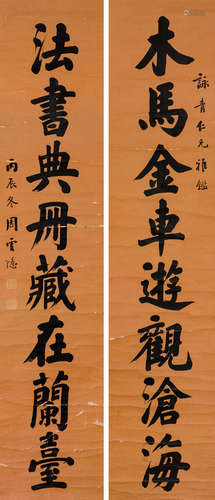 詠青仁兄雅鑑
木馬金車遊觀滄海
法書典冊藏在蘭臺
丙辰冬周雲隱